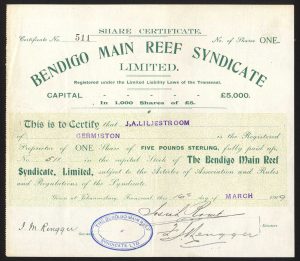 SHARE CERTIFICATE.
Certificate No. 511 No. of Shares ONE.
BENDIGO MAIN REEF SYNDICATE
LIMITED.
Registered under the Limited Liability Laws of the Transvaal.
CAPITAL - - - - £5,000.
In 1,000 Shares of £5.
This is to Certify that J.A. LILJESTROOM
of GERMISTON is the Registered
Proprietor of ONE Share of FIVE POUNDS STERLING, fully paid up,
No. 511 in the capital Stock of The Bendigo Main Reef
Syndicate, Limited, subject to the Articles of Association and Rules
and Regulations of the Syndicate.
Given at Johannesburg, Transvaal this day of MARCH
THE BENDIGO MAIN REEF
SYNDICATE LTD
J. M. Rengger